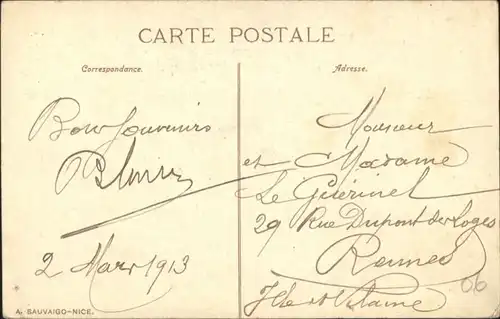 CARTE POSTALE
Correspondance.
Adresse.
Bons Souvenirs
2 Mars 1913
Monsieur
et Madame
Le Guérinel
29 Rue Dupont des Loges
Rennes
Ille et Vilaine
06
A. SAUVAIGO-NICE.